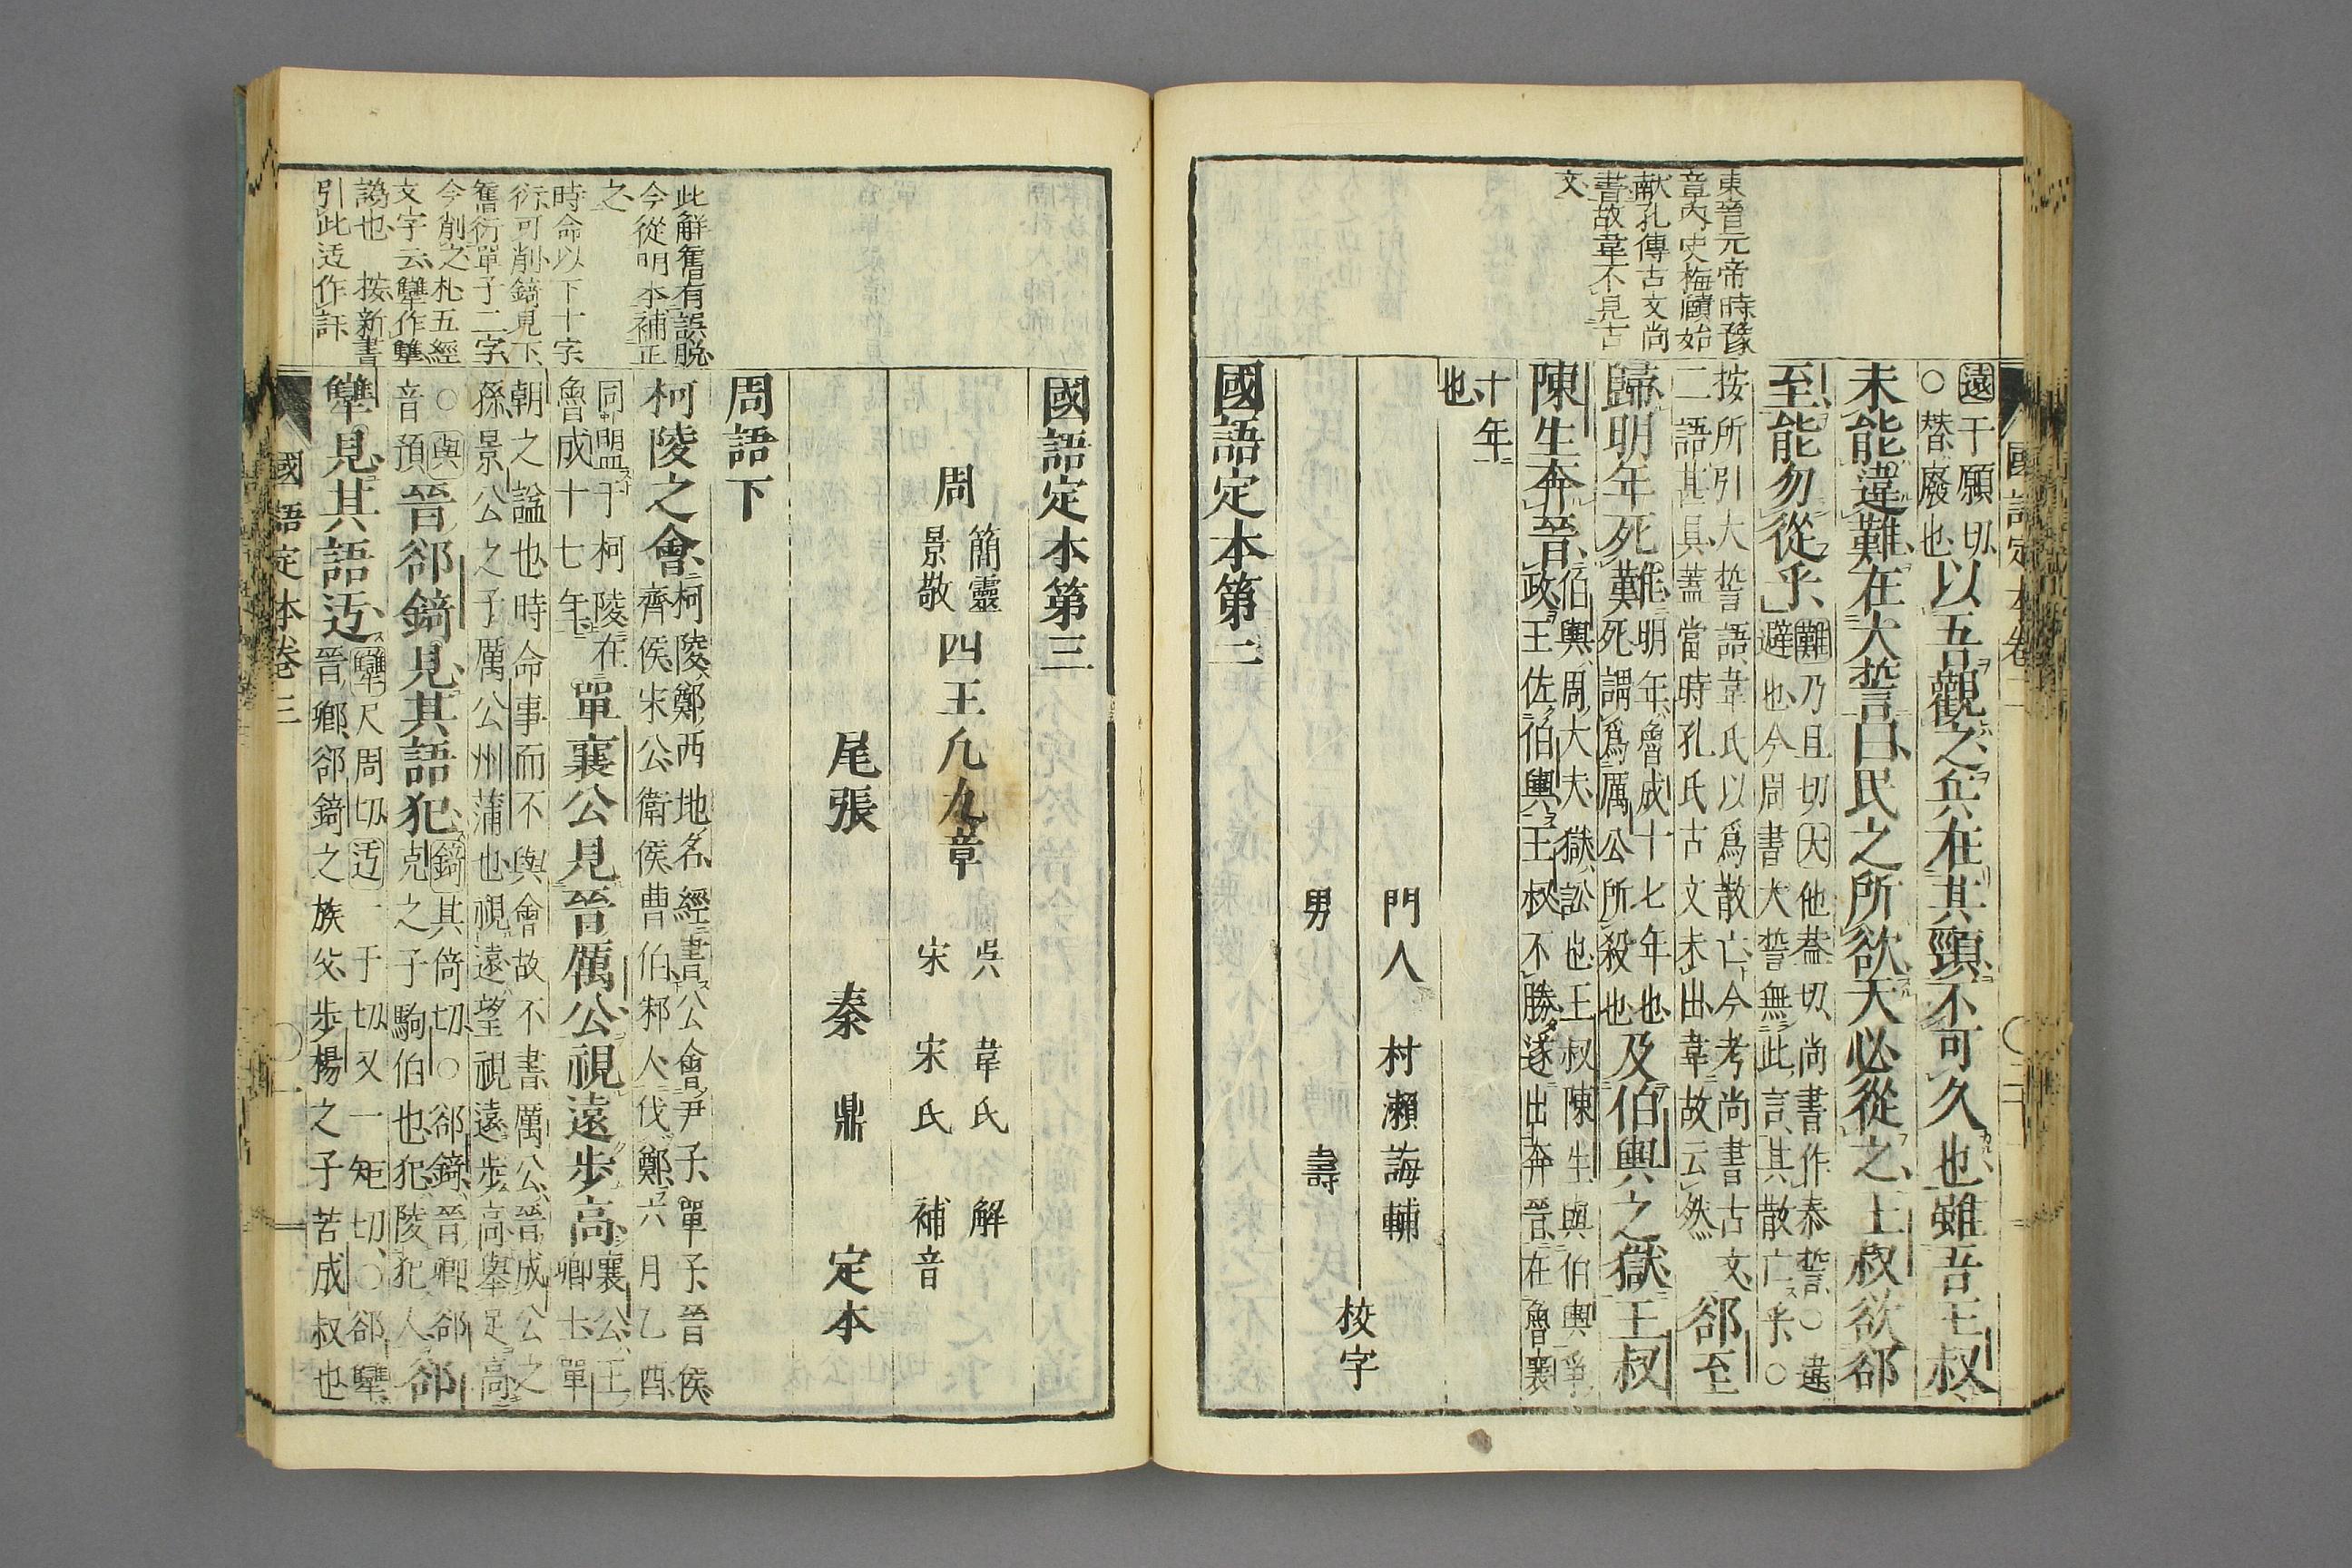 東晉元帝時豫
章內史梅頤始
獻孔傳古文尚
書故韋不見古
文
遠于願切
○替廢也以吾觀之兵在其頸不可久也雖吾王叔
未能違難在大誓曰民之所欲天必從之王叔欲郤
至能勿從乎難乃旦切大他蓋切尚書作泰誓○違
避也今周書大誓無此言其散亡乎○
按所引大誓語韋氏以爲散亡今考尚書古文
二語其具蓋當時孔氏古文未出韋故云然郤至
歸明年死難明年魯成十七年也
難死謂爲厲公所殺也及伯輿之獄王叔
陳生奔晉伯輿周大夫獄訟也王叔陳生與伯輿爭
政王佐伯輿王叔不勝遂出奔晉在魯襄
十年
也
門人 村瀨誨輔
男 壽
校字
國語定本第二
國語定本卷二
國語定本第三
周簡靈
景敬四王凢九章
吳 韋氏 解
宋 宋氏 補音
尾張 秦 鼎 定本
周語下
柯陵之會柯陵鄭西地名經書公會尹子單子晉侯
齊侯宋公衛侯曹伯邾人伐鄭六月乙酉
同盟于柯陵在
魯成十七年單襄公見晉厲公視遠步高襄公王
卿士單
朝之諡也時命事而不與會故不書厲公晉成公之
孫景公之子厲公州蒲也視遠望視遠步高舉足高
○與
音預晉郤錡見其語犯錡其倚切○郤錡晉卿郤
克之子駒伯也犯陵犯人郤
犨見其語迃犨尺周切迃一于切又一矩切○郤犨
晉卿郤錡之族父步楊之子苦成叔也
此解舊有誤脫
今從明本補正
之
時命以下十字
衍可削錡見下
舊衍單子二字
今削之札五經
文字云犫作犨
譌也 按新書
引此迃作訏
國語定本卷三
○一